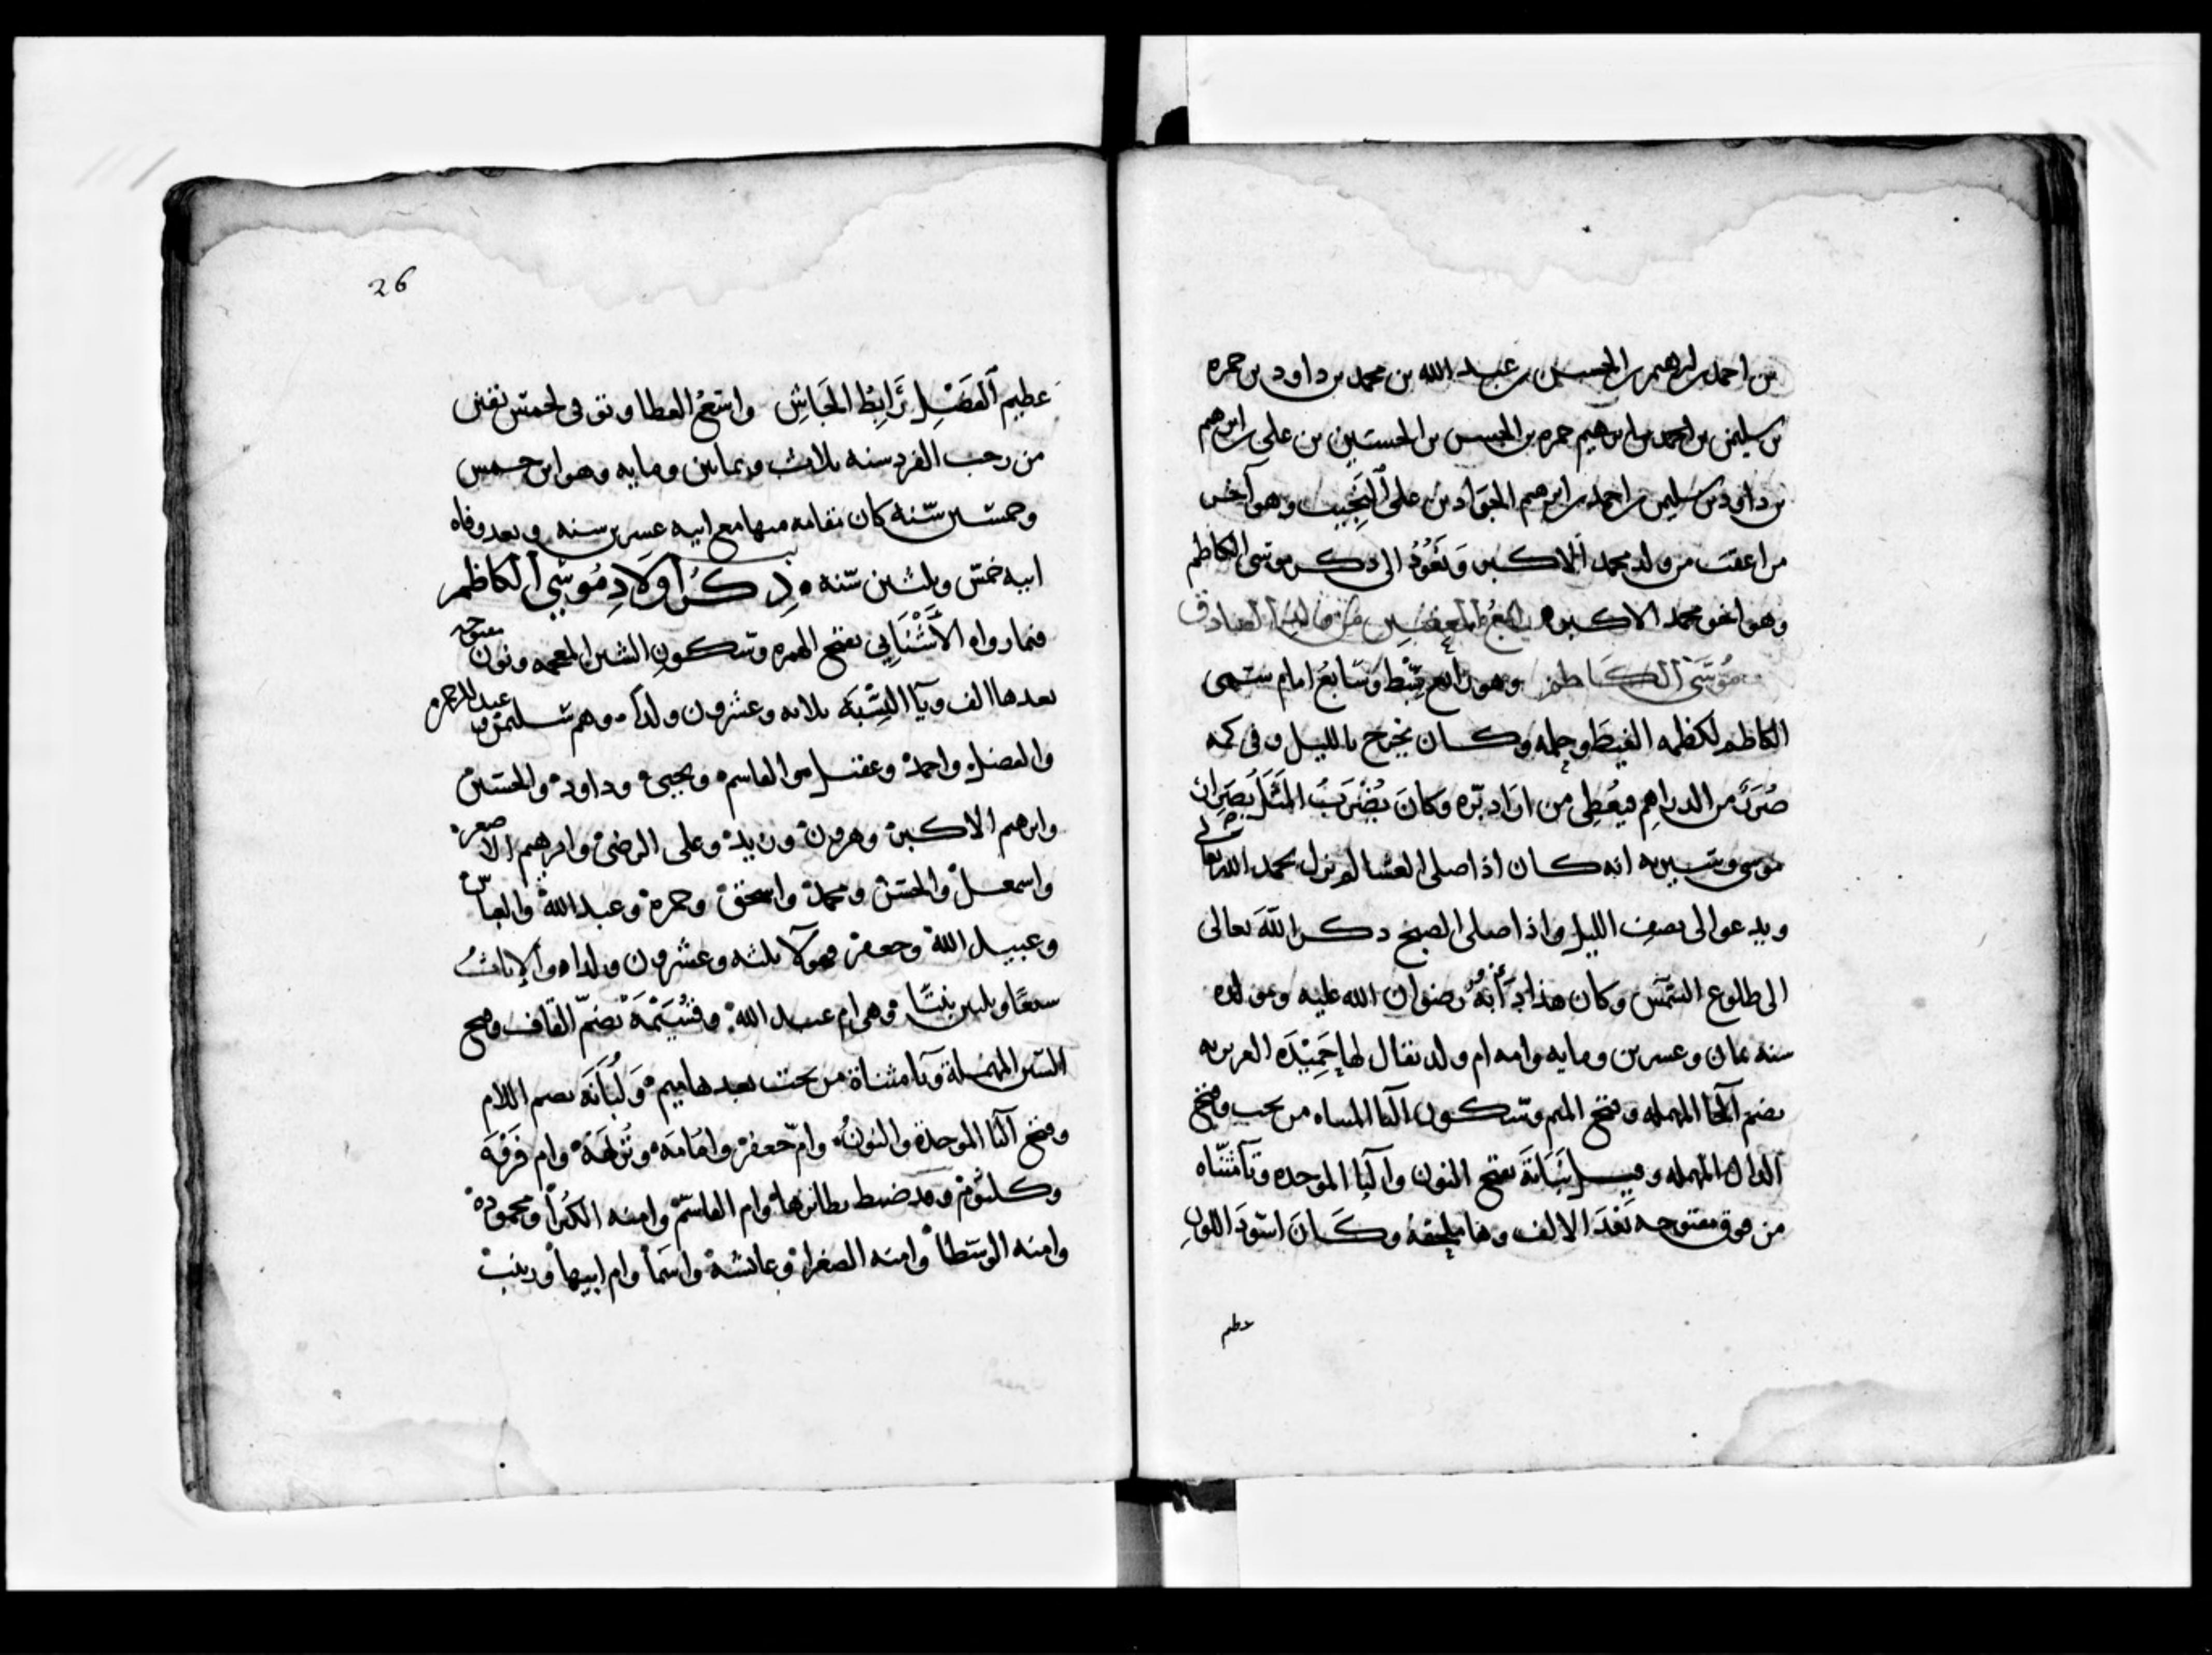 بن احمد بن ابرهيم بن الحسين بن عبد الله بن محمد بن داود بن حمزه
بن سليمن بن احمد بن ابرهيم حمزه بن الحسن بن الحسين بن علي بن ابرهيم
بن داود بن سليمن بن احمد بن ابرهيم الجواد بن على النجيب وهو آخر
من اعقب من ولد محمد الاكبر وَنَعُودُ الى ذكر موسى الكاظم
وهو اخو محمد الاكبر من الصادق
مُوسَى الكَاظم وهو رابع سِبْط وَسَابعُ امام سمى
الكاظم لكظمه الغيظ وحلمه وكان يخرج بالليل وفى كمه
صُرَرٌ من الدراهِم فيعُطِى من اراد بِرّه وَكانَ يُضْرَبُ المَثَل بصَرائر
موسى وسيره انه كان اذا صلى العشا لم يزل يحمد الله تعالى
ويدعو الى نصف الليل واذا صلى الصبح ذكر الله تعالى
الى طلوع الشمس وكان هذا دأبهُ رضوان الله عليه ومولده
سنه ثمان وعشرين ومايه وامه ام ولد يقال لها حُمَيْدَه البربريه
بضم الحا المهمله وفتح الميم وسكون اليا المثناه من تحت وفتح
الدال المهمله وقيل نَبَاتَة بفتح النون والبا الموحده وتا مثناه
من فوق مفتوحه بَعْدَ الالف وها ملحقة وكَانَ اسْوَدَ اللونِ
عظيم
26
عظيم الفَضْلِ رَابِط الجَاشِ واسعُ العطا وتوفى لخمس بقين
من رجب الفرد سنه ثلاث وثمانين ومايه وهو ابن خمس
وخمسين سنه كان مقامه منها مع ابيه عشرين سنه وبعد وفاه
ابيه خمس وثلثين سنه ذِكرُ اولَادِ مُوسى الكاظم
فيما رواه الأُشْنَانِي بفتح الهمزه وسكون الشين المعجمه ونون مفتوحه
بعدها الف ويا النِسْبَة ثلاثه وعشرون ولداً وهم سليمن وعبد الرحمن
والفضل واحمد وعقيل والقاسم ويحيى وداود والحسين
وابرهيم الاكبر وهرون وزيد وعلى الرضى وابرهيم الاصغر
واسمعيل والحسن ومحمد واسحق وحمزه وعبد الله والعباس
وعبيد الله وجعفر فهولا ثلثه وعشرون ولدا والاناث
سبعًا وثلثين بنتًا وهى ام عبد الله وقُسَيْمَة بضم القاف وفتح
السين المهملة ويا مثناة من تحت بعدها ميم وَلُبَانَة بضم اللام
وفتح البا الموحدة والنون وام جعفر وامامه ونُزَيْهة وام فَرْوَة
وكلثوم وقد ضبط نظايرها وام القاسم وامنه الكبرا ومحموده
وامنه الوسطا وامنه الصغرا وعائشة واسَما وام ابيها وزينب